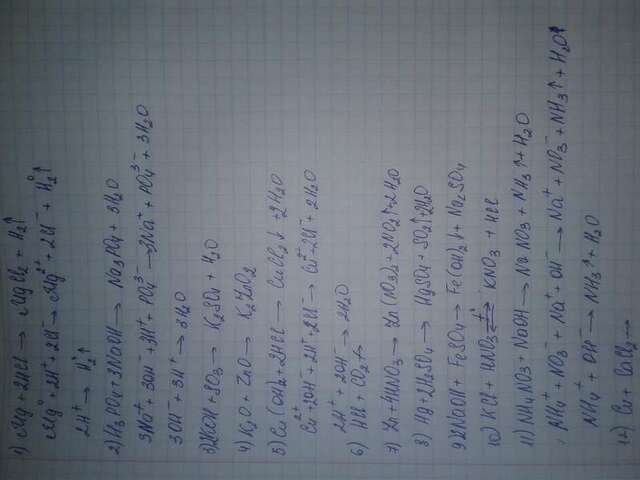 1) Mg + 2HCl → MgCl2 + H2↑
Mg⁰ + 2H⁺ + 2Cl⁻ → Mg²⁺ + 2Cl⁻ + H2⁰↑
2H⁺ → H2⁰↑
2) H3PO4 + 3NaOH → Na3PO4 + 3H2O
3Na⁺ + 3OH⁻ + 3H⁺ + PO4³⁻ → 3Na⁺ + PO4³⁻ + 3H2O
3OH⁻ + 3H⁺ → 3H2O
3) 2KOH + SO3 → K2SO4 + H2O
4) K2O + ZnO → K2ZnO2
5) Cu(OH)2 + 2HCl → CuCl2↓ + 2H2O
Cu²⁺ + 2OH⁻ + 2H⁺ + 2Cl⁻ → Cu²⁺ + 2Cl⁻ + 2H2O
2H⁺ + 2OH⁻ → 2H2O
6) HCl + CO2 ↛
7) Zn + 4HNO3 → Zn(NO3)2 + 2NO2↑ + 2H2O
8) Hg + 2H2SO4 → HgSO4 + SO2↑ + 2H2O
9) 2NaOH + FeSO4 → Fe(OH)2↓ + Na2SO4
10) KCl + HNO3 ⇌ t° KNO3 + HCl
11) NH4NO3 + NaOH → NaNO3 + NH3↑ + H2O
NH4⁺ + NO3⁻ + Na⁺ + OH⁻ → Na⁺ + NO3⁻ + NH3↑ + H2O↑
NH4⁺ + OH⁻ → NH3↑ + H2O
12) Cu + CaCl2 →